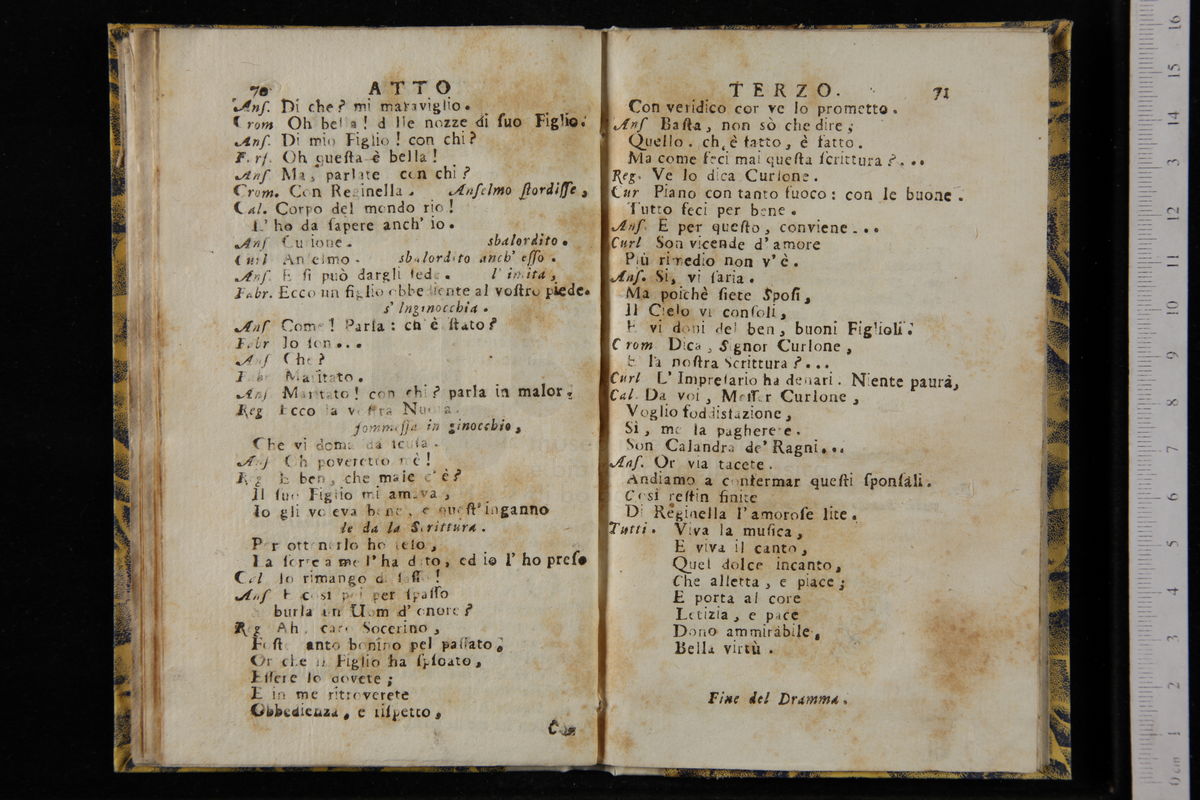 70 ATTO
Ans. Di che? mi maraviglio.
Crom Oh bella! d lle nozze di suo Figlio.
Ans. Di mio Figlio! con chi?
Oh questa è bella!
Ans Ma, parlate con chi?
Crom. Con Reginella. Anselmo stordisse,
Cal. Corpo del mondo rio!
L' ho da sapere anch' io.
Ans Curione. sbalordito.
Curl Anselmo. sbalordito anch' esso.
Ans. E si può dargli fede. l' imita,
Fabr. Ecco un figlio obbediente al vostro piede.
s' Inginocchia.
Ans Come! Parla: ch' è stato?
Fabr Io son...
Ans Che?
Fabr Maritato.
Ans Maritato! con chi? parla in malor;
Reg Ecco la vostra Nuora.
sommessa in ginocchio,
Che vi doma da scusa.
Ans Oh poveretto mè!
Reg E ben, che male c' è?
Il suo Figlio mi amava,
Io gli voleva bene, e quest' inganno
le da la Scrittura.
Per ottenerlo ho teso,
La sorte a me l' ha dato, ed io l' ho preso
Cal Io rimango di sasso!
Ans E così poi per spasso
burla un Uom d' onore?
Reg Ah, caro Socerino,
Foste anto bonino pel passato;
Or che il Figlio ha sposato,
Essere lo dovete;
E in me ritroverete
Obbedienza, e rispetto,
Con
TERZO. 71
Con veridico cor ve lo prometto.
Ans Basta, non sò che dire;
Quello. ch' è fatto, è fatto.
Ma come feci mai questa scrittura?...
Reg. Ve lo dica Curlone.
Cur Piano con tanto fuoco: con le buone.
Tutto feci per bene.
Ans. E per questo, conviene...
Curl Son vicende d' amore
Più rimedio non v' è.
Ans. Si, vi saria.
Ma poichè siete Sposi,
Il Cielo vi consoli,
E vi doni del ben, buoni Figlioli.
Crom Dica, Signor Curlone,
E la nostra Scrittura?...
Curl L' Impresario ha denari. Niente paura,
Cal. Da voi, Messer Curlone,
Voglio soddisfazione,
Sì, me la pagherete.
Son Calandra de' Ragni...
Ans. Or via tacete.
Andiamo a confermar questi sponsali.
Così restin finite
Di Reginella l' amorose lite.
Tutti. Viva la musica,
E viva il canto,
Quel dolce incanto,
Che alletta, e piace;
E porta al core
Letizia, e pace
Dono ammirabile,
Bella virtù.
Fine del Dramma.